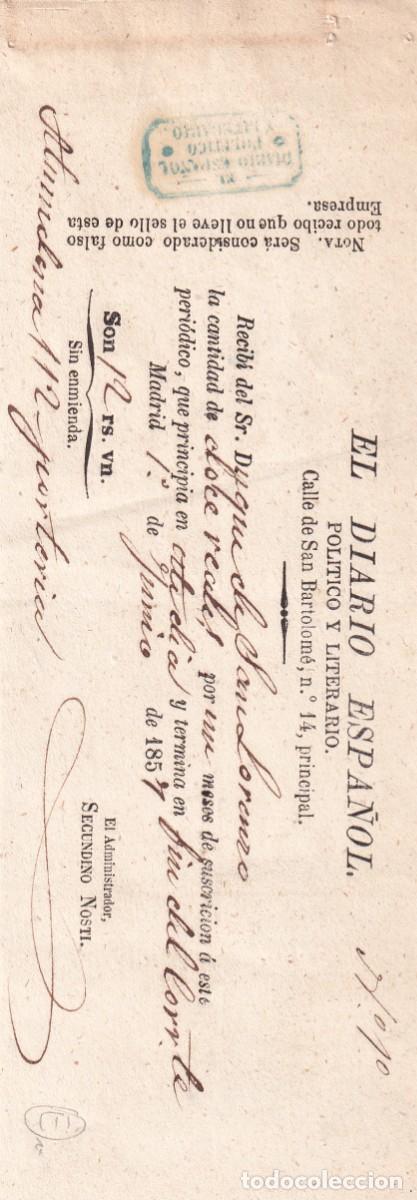 EL DIARIO ESPAÑOL.
POLITICO Y LITERARIO.
Calle de San Bartolomé, n.° 14, principal.
Recibí del Sr. Duque de San Lorenzo
la cantidad de doce reales por un meses de suscricion á este
periódico, que principia en este dia y termina en fin del Corr.te
Madrid 1.° de Junio de 1857
Son 12 rs. vn.
Sin enmienda.
El Administrador,
SECUNDINO NOSTI.
Almudena 112 porteria
NOTA. Será considerado como falso
todo recibo que no lleve el sello de esta
Empresa.
EL
DIARIO ESPAÑOL
POLITICO
Y LITERARIO.
todocoleccion.net